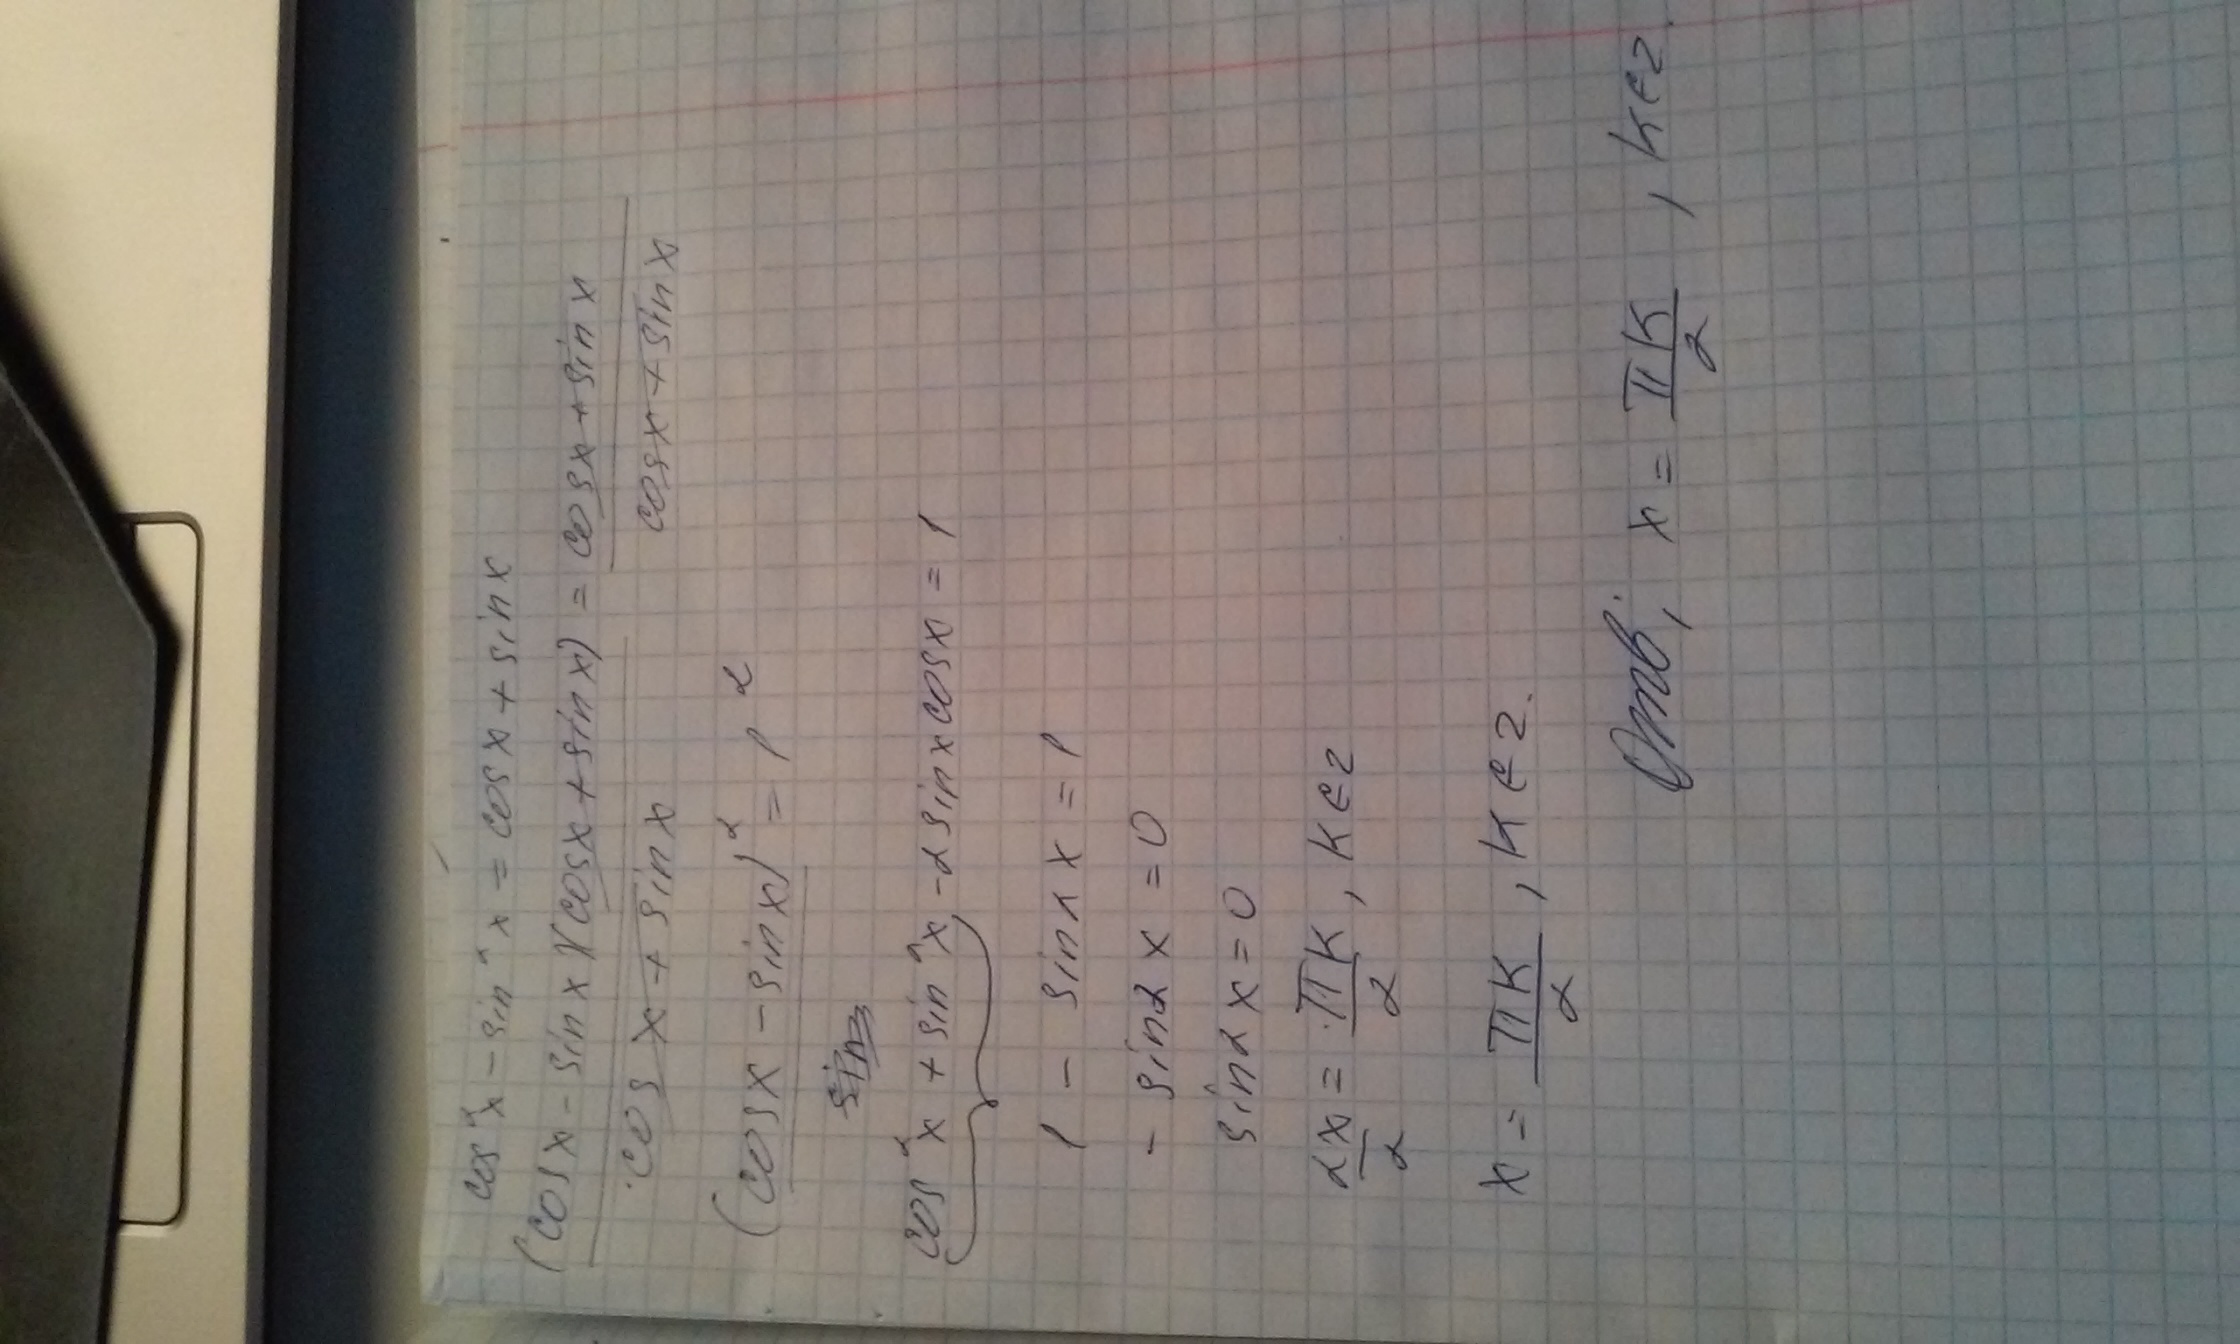 cos²x - sin²x = cosx + sinx
(cosx - sinx)(cosx + sinx) = cosx + sinx
cosx + sinx cosx + sinx
(cosx - sinx)² = 1²
cos²x + sin²x - 2sinxcosx = 1
1 - sin2x = 1
- sin2x = 0
sin2x = 0
2x/2 = πk/2, k∈z
x = πk/2, k∈z.
Отв; x = πk/2, k∈z.